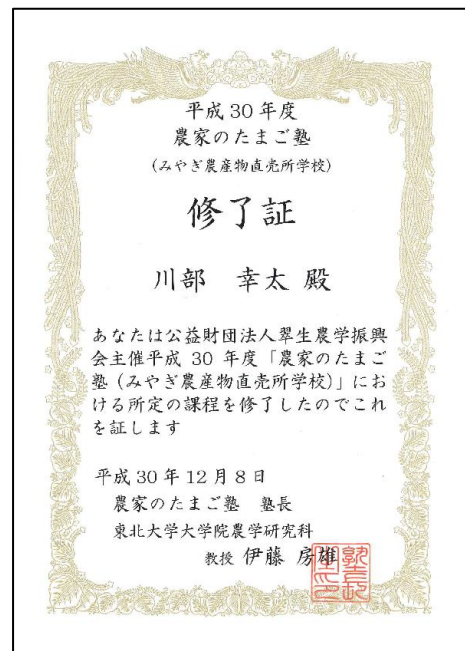 平成 30 年度
農家のたまご塾
(みやぎ農産物直売所学校)
修了証
川部 幸太 殿
あなたは公益財団法人翠生農学振興
会主催平成 30 年度「農家のたまご
塾（みやぎ農産物直売所学校）」にお
ける所定の課程を修了したのでこれ
を証します
平成 30 年 12 月 8 日
農家のたまご塾 塾長
東北大学大学院農学研究科
教授 伊藤 房雄